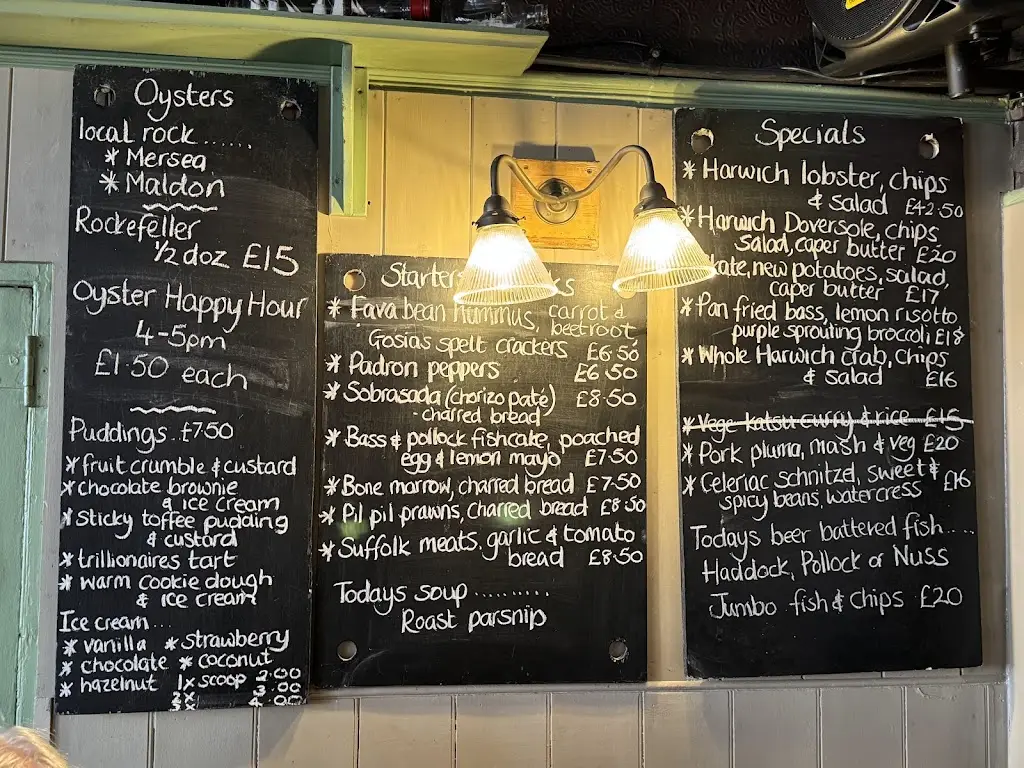 Oysters
local rock......
* Mersea
* Maldon
Rockefeller
1/2 doz £15
Oyster Happy Hour
4-5pm
£1.50 each
Puddings £7.50
* fruit crumble & custard
* chocolate brownie
& ice cream
* Sticky toffee pudding
& custard
* trillionaires tart
* warm cookie dough
& ice cream
Ice cream...
* vanilla * strawberry
* chocolate * coconut
* hazelnut 1x scoop 2.00
2x 3.00
3x 4.00
* Fava bean hummus, carrot &
beetroot
Gosia's spelt crackers £6.50
* Padron peppers £6.50
* Sobrasada (chorizo paté) £8.50
- charred bread
* Bass & pollock fishcake, poached
egg & lemon mayo £7.50
* Bone marrow, charred bread £7.50
* Pil pil prawns, charred bread £8.50
* Suffolk meats, garlic & tomato
bread £8.50
Todays soup .........
Roast parsnip
Specials
* Harwich lobster, chips
& salad £42.50
* Harwich Doversole, chips
salad, caper butter £20
new potatoes, salad,
caper butter £17
* Pan fried bass, lemon risotto
purple sprouting broccoli £18
* Whole Harwich crab, chips
& salad £16
* Vege katsu curry & rice £15
* Pork pluma, mash & veg £20
* Celeriac schnitzel, sweet &
spicy beans, watercress £16
Todays beer battered fish....
Haddock, Pollock or Nuss
Jumbo fish & chips £20